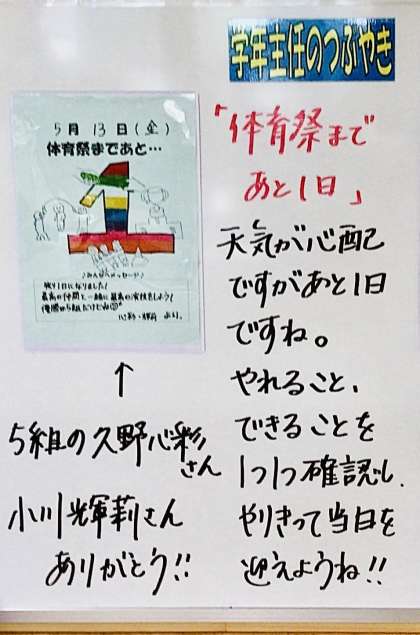 学年主任のつぶやき
「体育祭まで
あと1日」
天気が心配
ですがあと1日
ですね。
やれること、
できることを
1つ1つ確認し、
やりきって当日を
迎えようね!!
5月13日(金)
体育祭まであと…
1
♪みんなへメッセージ♪
残り1日になりました!
最高の仲間と一緒に最高の演技をしよう!
優勝は5組だけどね
心彩・輝莉 より。
↑
5組の久野心彩
さん
小川輝莉さん
ありがとう!!